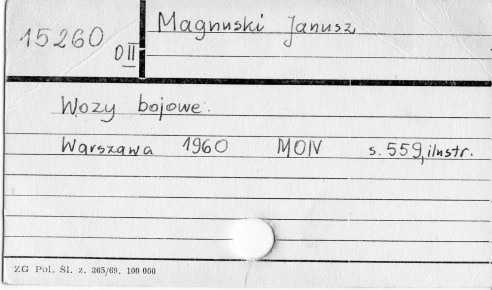 15260
D II
Magnuski Janusz
Wozy bojowe.
Warszawa 1960 MON s. 559, ilustr.
ZG Pol. Śl. z. 365/69. 100 000